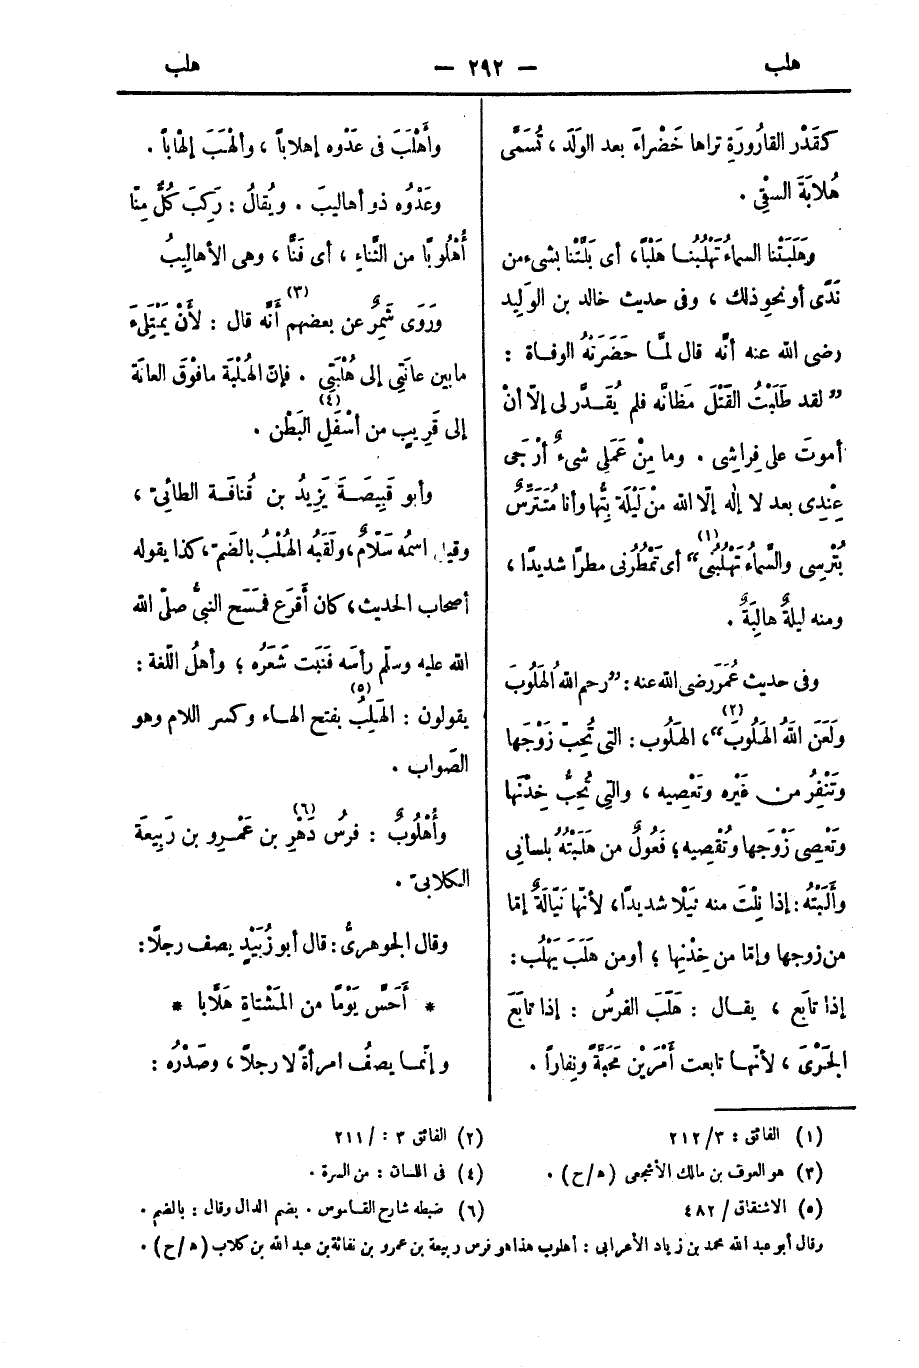 هلب — ٢٩٢ — هلب
كقَدْر القارُورَةِ تراها خَضْراءَ بعد الوَلَد ، تُسَمَّى
هُلابَةَ السقْي .
وهَلَبَتْنا السماءُ تَهْلُبُنا هَلْبًا، أى بَلَّتْنا بشىء من
نَدًى أو نحو ذلك ، وفى حديث خالد بن الوَلِيد
رضى الله عنه أنَّه قال لمَّا حَضَرَتْهُ الوفاة :
” لقد طَلَبْتُ القَتْلَ مَظانَّه فلم يُقَدَّر لى إلاّ أنْ
أموتَ على فِراشِى . وما مِنْ عَمَلِى شىءٌ أرْجَى
عِنْدِى بعد لا إله إلّا الله منْ لَيْلَة بِتُّها وأنا مُتَتَرِّسٌ
بتُرْسِى والسَّماءُ تَهْلُبُنِى“(١) أى تَمْطُرُنى مطرًا شديدًا ،
ومنه ليلةٌ هالِبَةٌ .
وفى حديث عُمَرَ رضى الله عنه : ”رحم الله الهَلُوبَ
ولَعَنَ اللهُ الهَلُوبَ“(٢)، الهَلُوب : التى تُحِبّ زَوْجَها
وتَنْفِرُ من غَيْره وتَعْصِيه ، والتِى تُحِبُّ خِدْنَها
وتَعْصِى زَوْجَها وتُقْصِيه ؛ فَعُولٌ من هَلَبْتُهُ بلسانى
وألَبْتُهُ : إذا نِلْتَ منه نَيْلًا شديدًا ، لأنّها نَيّالَةٌ إمّا
من زوجها وإمّا من خِدْنِها ؛ أو من هَلَبَ يَهْلُب :
إذا تابَع ، يقال : هَلَبَ الفرسُ : إذا تابَعَ
الجَرْىَ ، لأنّها تابعت أمْرَيْن مَحَبَّةً ونِفاراً .
وأَهْلَبَ فى عَدْوه إهلاباً ، وألْهَبَ إلْهاباً .
وعَدْوُه ذو أهاليبَ . ويُقالُ : رَكِبَ كُلٌّ مِنّا
أُهْلُوبًا من الثَّناءِ ، أى فَنًّا ، وهى الأهالِيبُ
ورَوَى شَمِرٌ عن بعضهم أنَّه(٣) قال : لأنْ يَمْتَلِىءَ
ما بين عانَتِى إلى هُلْبَتِى . فإنّ الهُلْبَة ما فوْقَ العانَة
إلى قَرِيبٍ من أسْفَلِ(٤) البَطْن .
وأبو قَبِيصَةَ يَزِيدُ بن قُنافَة الطائىّ ،
وقيل اسمُه سَلّامٌ، ولَقَبُه الهُلْبُ بالضَمّ، كذا يقوله
أصحاب الحديث، كان أَقْرَع فمَسَح النبىُّ صلّى الله
الله عليه وسلّم رأسَه فنَبَت شَعَرُه ؛ وأهلُ اللّغة :
يقولون : الهَلِبُ(٥) بفتح الهاء وكسر اللام وهو
الصَواب .
وأُهْلُوبٌ : فرسُ دَهْرِ(٦) بن عَمْرِو بن رَبِيعَة
الكلابىّ .
وقال الجوهرىُّ : قال أبو زُبَيْدٍ يصف رجلًا :
* أَحَسَّ يَوْمًا من المَشْتاةِ هَلّابا *
وإنّما يصفُ امرأةً لا رجلًا ، وصَدْرُه :
(١) الفائق : ٢١٢/٣
(٢) الفائق ٣ : /٢١١
(٣) هو العوف بن مالك الأشجعى (ه/ح) .
(٤) فى اللسان : من السرة .
(٥) الاشتقاق / ٤٨٢
(٦) ضبطه شارح القاموس . بضم الدال وقال : بالضم .
وقال أبو عبد الله محمد بن زياد الأعرابى : أهلوب هذا هو فرس ربيعة بن عمرو بن نفاثة بن عبد الله بن كلاب (ه/ح) .